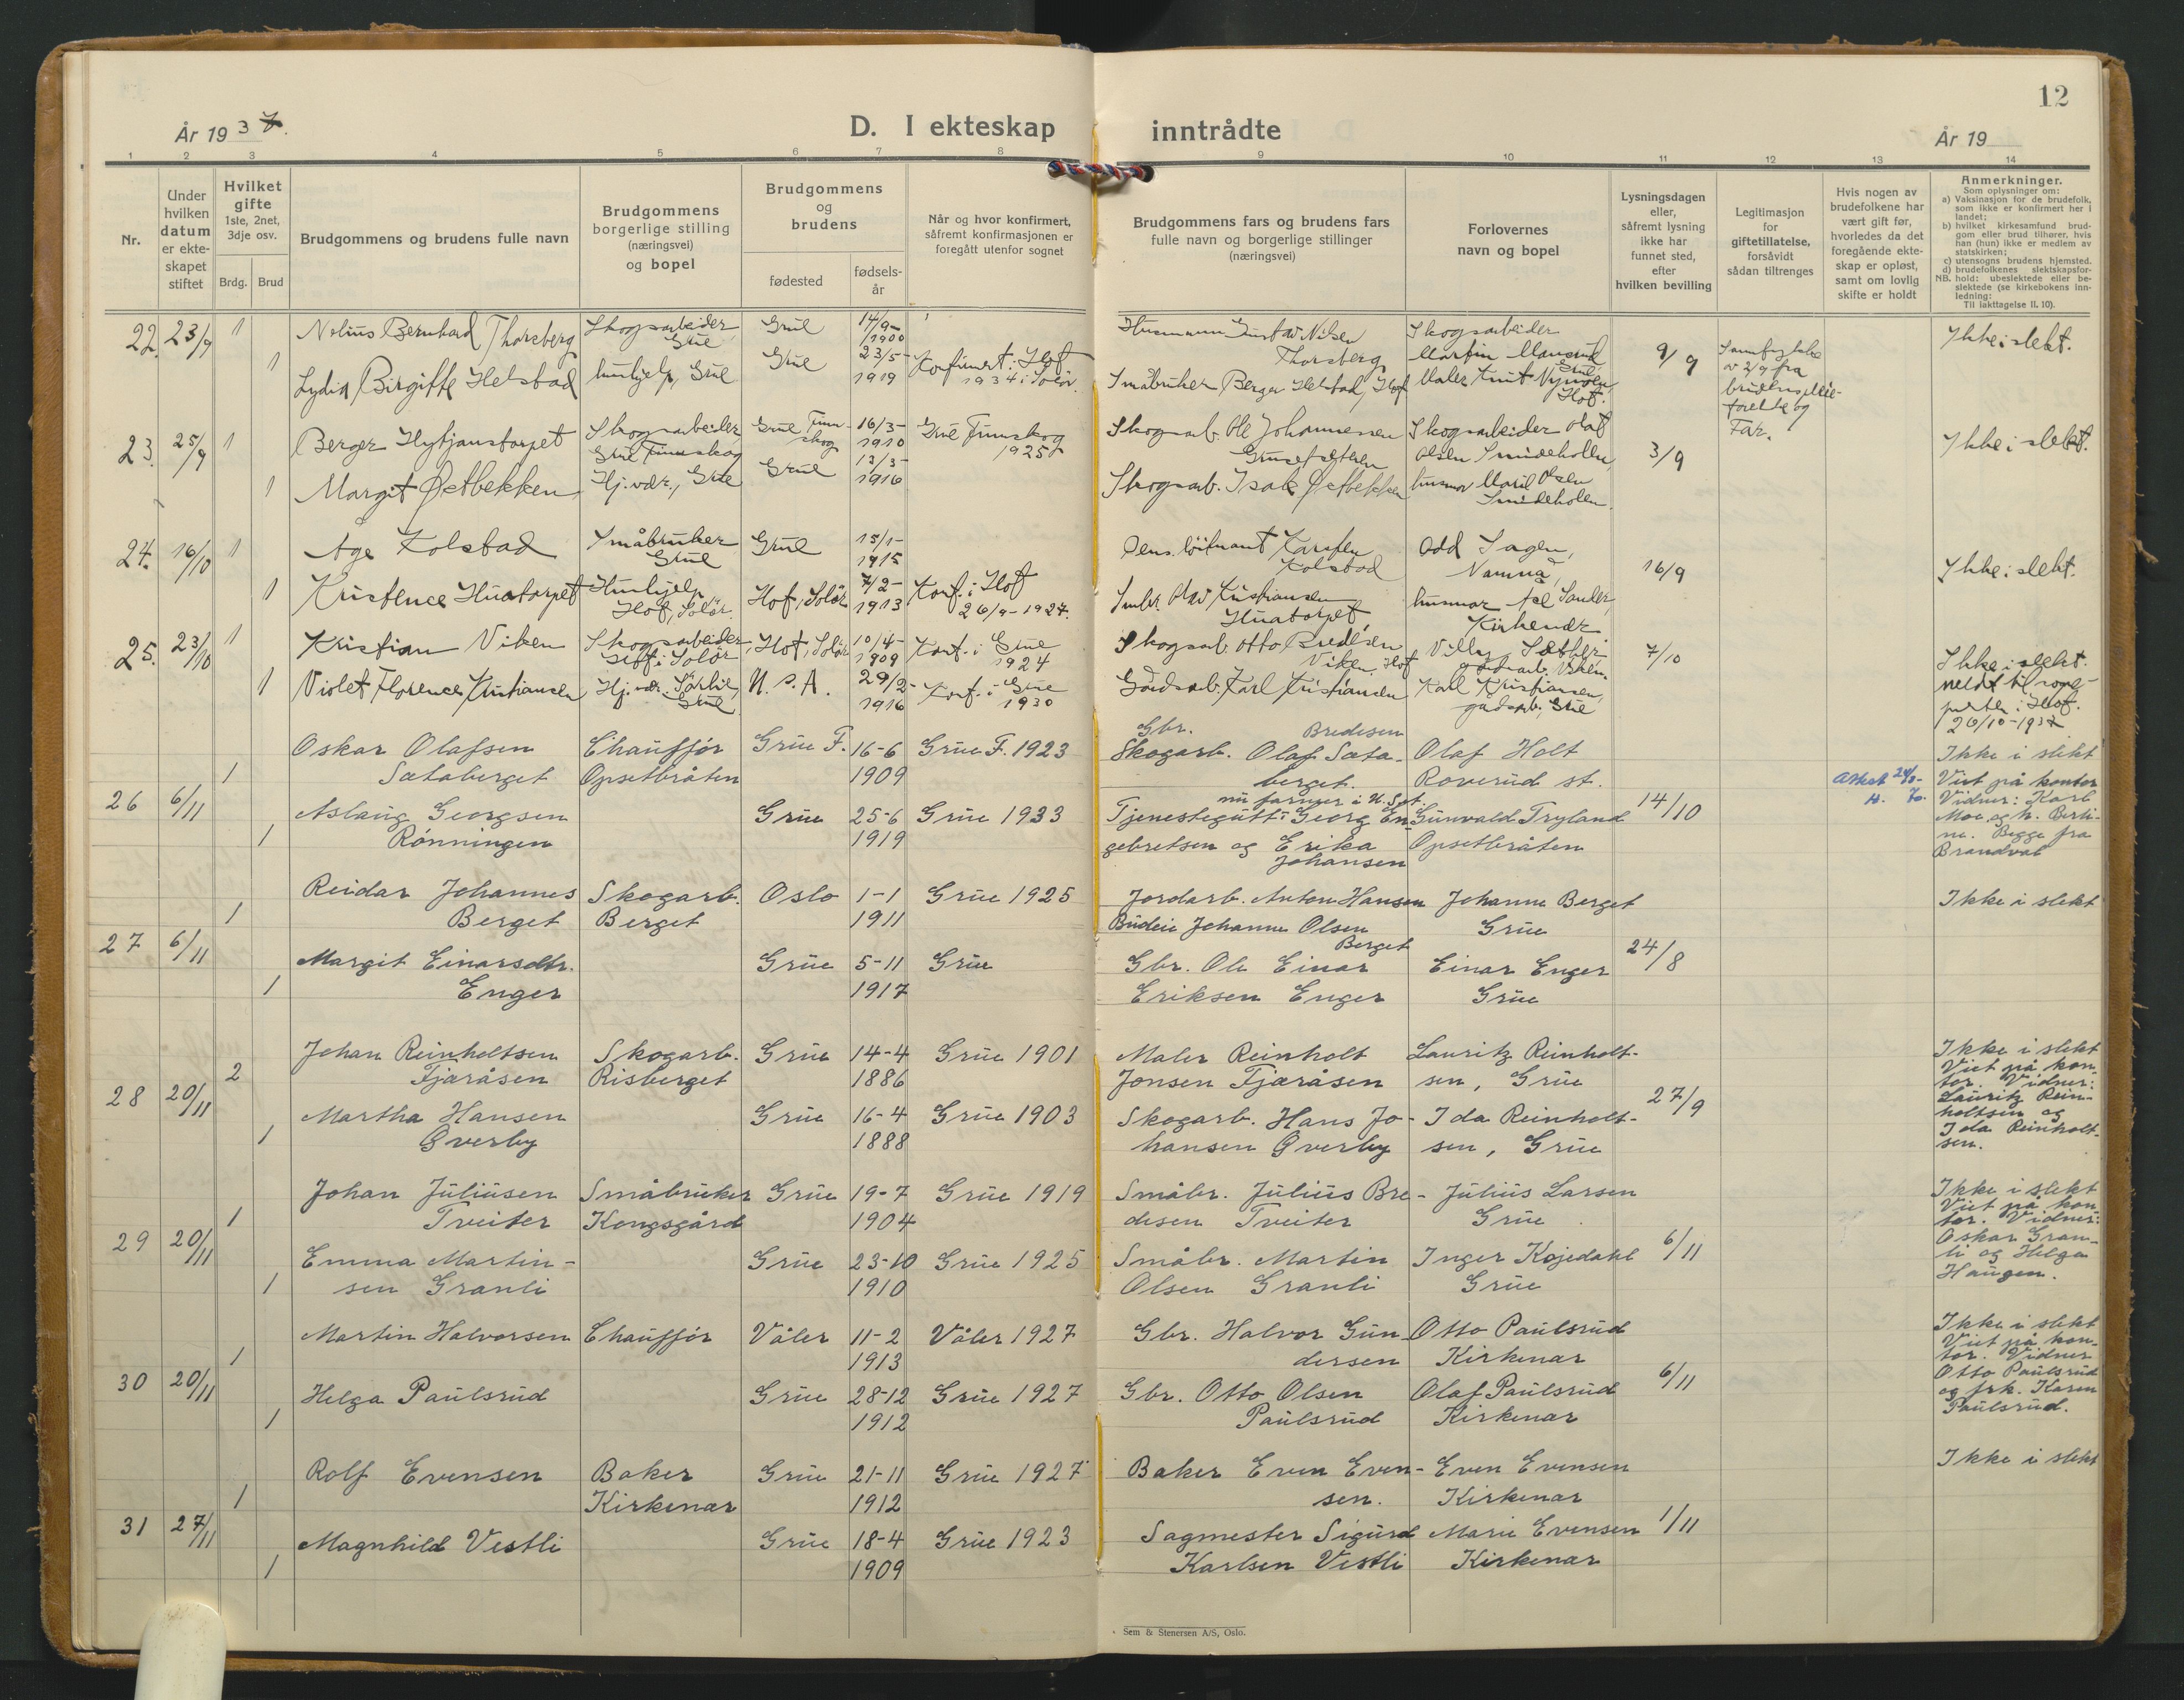 År 1937.
D. I ekteskap
inntrådte
12
År 19
1 2 3 4 5 6 7 8 9 10 11 12 13 14
Nr.
Under hvilken datum er ekte-skapet stiftet
Hvilket gifte 1ste, 2net, 3dje osv.
Brdg. Brud
Brudgommens og brudens fulle navn
Brudgommens borgerlige stilling (næringsvei) og bopel
Brudgommens og brudens
fødested
fødsels-år
Når og hvor konfirmert, såfremt konfirmasjonen er foregått utenfor sognet
Brudgommens fars og brudens fars fulle navn og borgerlige stillinger (næringsvei)
Forlovernes navn og bopel
Lysningsdagen eller, såfremt lysning ikke har funnet sted, efter hvilken bevilling
Legitimasjon for giftetillatelse, forsåvidt sådan tiltrenges
Hvis nogen av brudefolkene har vært gift før, hvorledes da det foregående ekte-skap er opløst, samt om lovlig skifte er holdt
Anmerkninger.
Som oplysninger om:
a) Vaksinasjon for de brudefolk, som ikke er konfirmert her i landet;
b) hvilket kirkesamfund brud-gom eller brud tilhører, hvis han (hun) ikke er medlem av statskirken;
c) utensogns brudens hjemsted.
d) brudefolkenes slektskapsfor-hold: ubeslektede eller be-slektede (se kirkebokens inn-ledning:
NB.
Til iakttagelse II. 10).
22. 23/9 1 Nelius Bernhard Thorsberg Skogsarbeider Grue Grue 14/9-1900 Husmann Gustav Nilsen Thorsberg Skogsarbeider Martin 9/9 Ikke i slekt.
1 Lydia Birgitte Helstad hushjelp, Grue Grue 23/5-1919 Konfirmert i Hof 1934 i Solør. Småbruker Berger Helstad, Hof Maler Knut Hof.
v 2/9 fra
og
Far.
23. 25/9 1 Berger Hytjanstorpet Skogsarbeider Grue Finnskog Grue Finn-skog 16/3-1910 Grue Finnskog 1925 Skogsarb. Ole Johannessen Skogsarbeider Olaf Olsen Smideholen 3/9 Ikke i slekt.
1 Margit Østbekken Hj.vær., Grue Grue 13/3-1916 Skogsarb. Isak Østbekken husmor Maril Olsen Smideholen
24. 16/10 1 Åge Kolstad Småbruker Grue Grue 15/1-1915 løitnant Karsten Kolstad Odd Sagen, Namnå, 16/9 Ikke i slekt.
1 Kristence Huatorpet Hushjelp Hof, Solør. Hof, Solør 7/2-1913 Konf. i Hof 26/9-1927. Smbr. Kristiansen Huatorpet, husmor Sander, Kirkenær
25. 23/10 1 Kristian Viken Skogsarbeider, Hof i Solør Hof, Solør 10/4-1909 Konf. i Grue 1924 Skogsarb. Otto Bredesen Viken, Hof Villy Sætther, Viken. 7/10 Ikke i slekt.
1 Violet Florence Kristiansen Hj.vær. Sørlie, Grue U.S.A. 29/2-1916 Konf. i Grue 1930 Gårdsarb. Karl Kristiansen Karl Kristiansen, gårdsarb., Grue meldt til sogne-presten i Hof. 26/10-1937
Oskar Olafsen Chauffør Grue F. 16-6 Grue F. 1923 Gbr. Bredesen Skogarb. Olaf Sæta- Olaf Holt Ikke i slekt
1 Sætaberget Opsetbråten 1909 berget. Roverud st. Attest 24/8- Viet på kontor
26 6/11 Aslaug Georgsen Grue 25-6 Grue 1933 nu farmer i U. St. Tjenestegutt: Georg En- Gunvald Tryland 14/10 Vidner: Karl Moe og h. Berti-
1 Rønningen 1919 gebretsen og Erika Johansen Opsetbråten ne. Begge fra Brandval
Reidar Johannes Skogarb. Oslo 1-1 Grue 1925 Jordarb. Anton Hansen Johanne Berget Ikke i slekt
1 Berget Berget 1911 Budeie Johanne Olsen Berget Grue
27 6/11 Margit Einarsdtr. Grue 5-11 Grue Gbr. Ole Einar Einar Enger 24/8
1 Enger 1917 Eriksen Enger Grue
Johan Reinholtsen Skogarb. Grue 14-4 Grue 1901 Maler Reinholt Lauritz Reinholt- Ikke i slekt
2 Tjæråsen Risberget 1886 Jonsen Tjæråsen sen, Grue Viet på kon-tor. Vidner:
28 20/11 Martha Hansen Grue 16-4 Grue 1903 Skogarb. Hans Jo- Ida Reinholt- 27/9 Lauritz Rein-holtsen og
1 Overby 1888 hansen Overby sen, Grue Ida Reinholt-sen.
Johan Juliussen Småbruker Grue 19-7 Grue 1919 Småbr. Julius Bre- Julius Larsen Ikke i slekt
1 Tveiter Kongsgård 1904 desen Tveiter Grue Viet på kon-tor. Vidner:
29 20/11 Emma Martin- Grue 23-10 Grue 1925 Småbr. Martin Inger Kojedahl 6/11 Oskar Gran-li og Helga
1 sen Granli 1910 Olsen Granli Grue Haugen.
Martin Halvorsen Chauffør Våler 11-2 Våler 1927 Gbr. Halvor Gun- Otto Paulsrud Ikke i slekt
1 1913 dersen Kirkenær Viet på kon-tor. Vidner
30 20/11 Helga Paulsrud Grue 28-12 Grue 1927 Gbr. Otto Olsen Olaf Paulsrud 6/11 Otto Paulsrud og frk. Karen
1 1912 Paulsrud Kirkenær Paulsrud.
Rolf Evensen Baker Grue 21-11 Grue 1927 Baker Even Even- Even Evensen Ikke i slekt
1 Kirkenær 1912 sen. Kirkenær
31 27/11 Magnhild Vestli Grue 18-4 Grue 1923 Sagmester Sigurd Marie Evensen 1/11
1 1909 Karlsen Vestli Kirkenær
Sem & Stenersen A/S, Oslo.